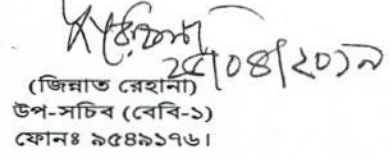 ২৫/০৪/২০১৯
(জিন্নাত রেহানা)
উপ-সচিব (বেবি-১)
ফোনঃ ৯৫৪৯১৭৬।